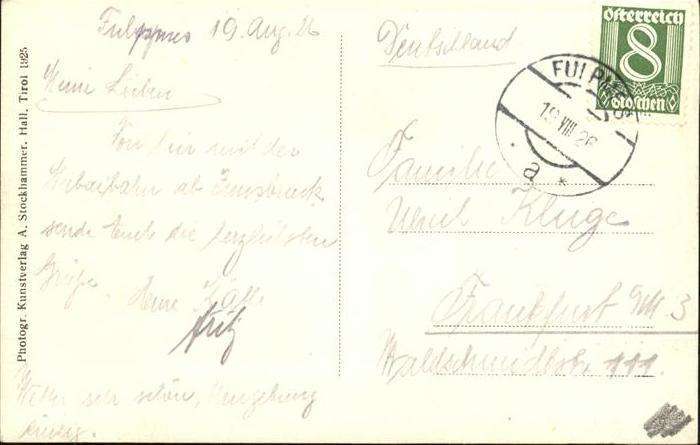 Photogr. Kunstverlag A. Stockhammer, Hall, Tirol 1925
Fulpmes 19. Aug. 26
Meine Lieben
Von hier mit der
Stubaibahn ab Innsbruck
sende Euch die herzlichsten
Grüße.
Fritz
Wetter sehr schön, Umgebung
Deutschland
Österreich
8
Groschen
FULPMES
19 VIII 26
a
*
Familie
Kluge
Frankfurt a/M 3
Waldschmidtstr. 111.